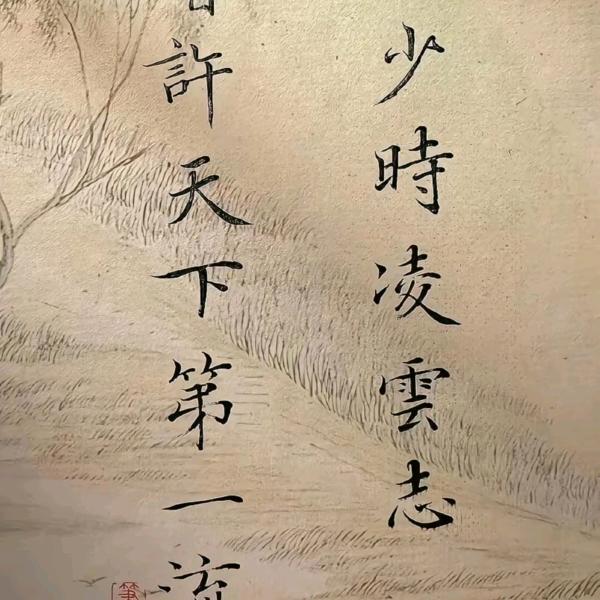 少時凌雲志
許天下第一流